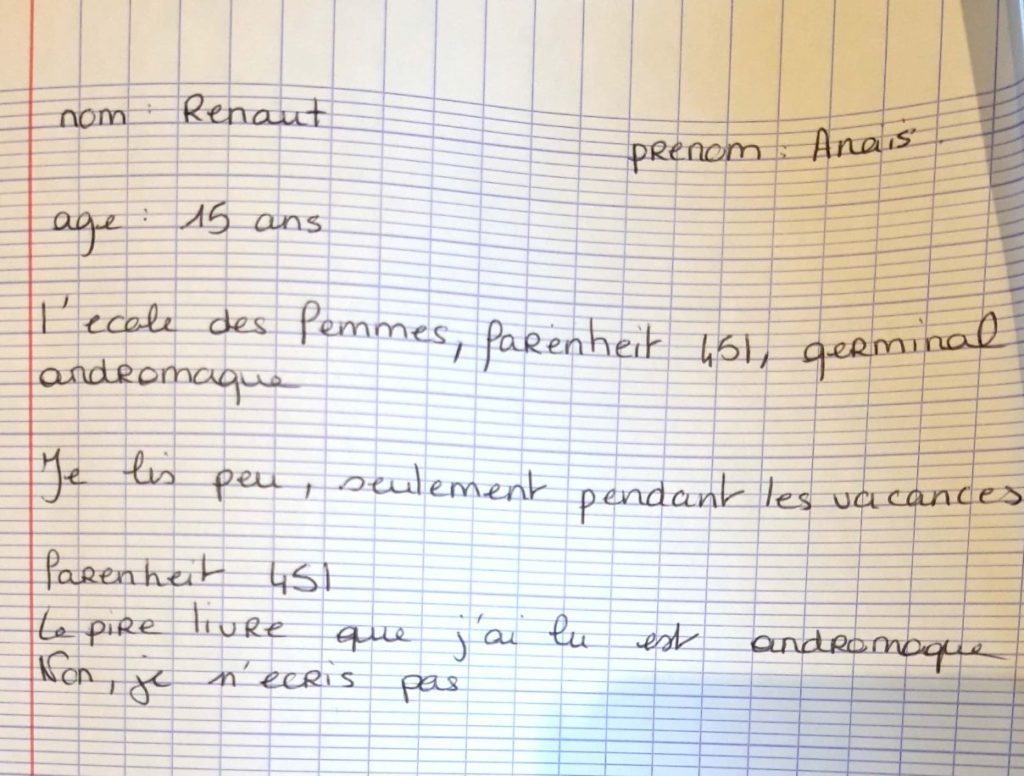 nom : Renaut
prenom : Anais
age : 15 ans
l'ecole des femmes, farenheit 451, germinal
andromaque
Je lis peu, seulement pendant les vacances
farenheit 451
Le pire livre que j'ai lu est andromaque
Non, je n'ecris pas